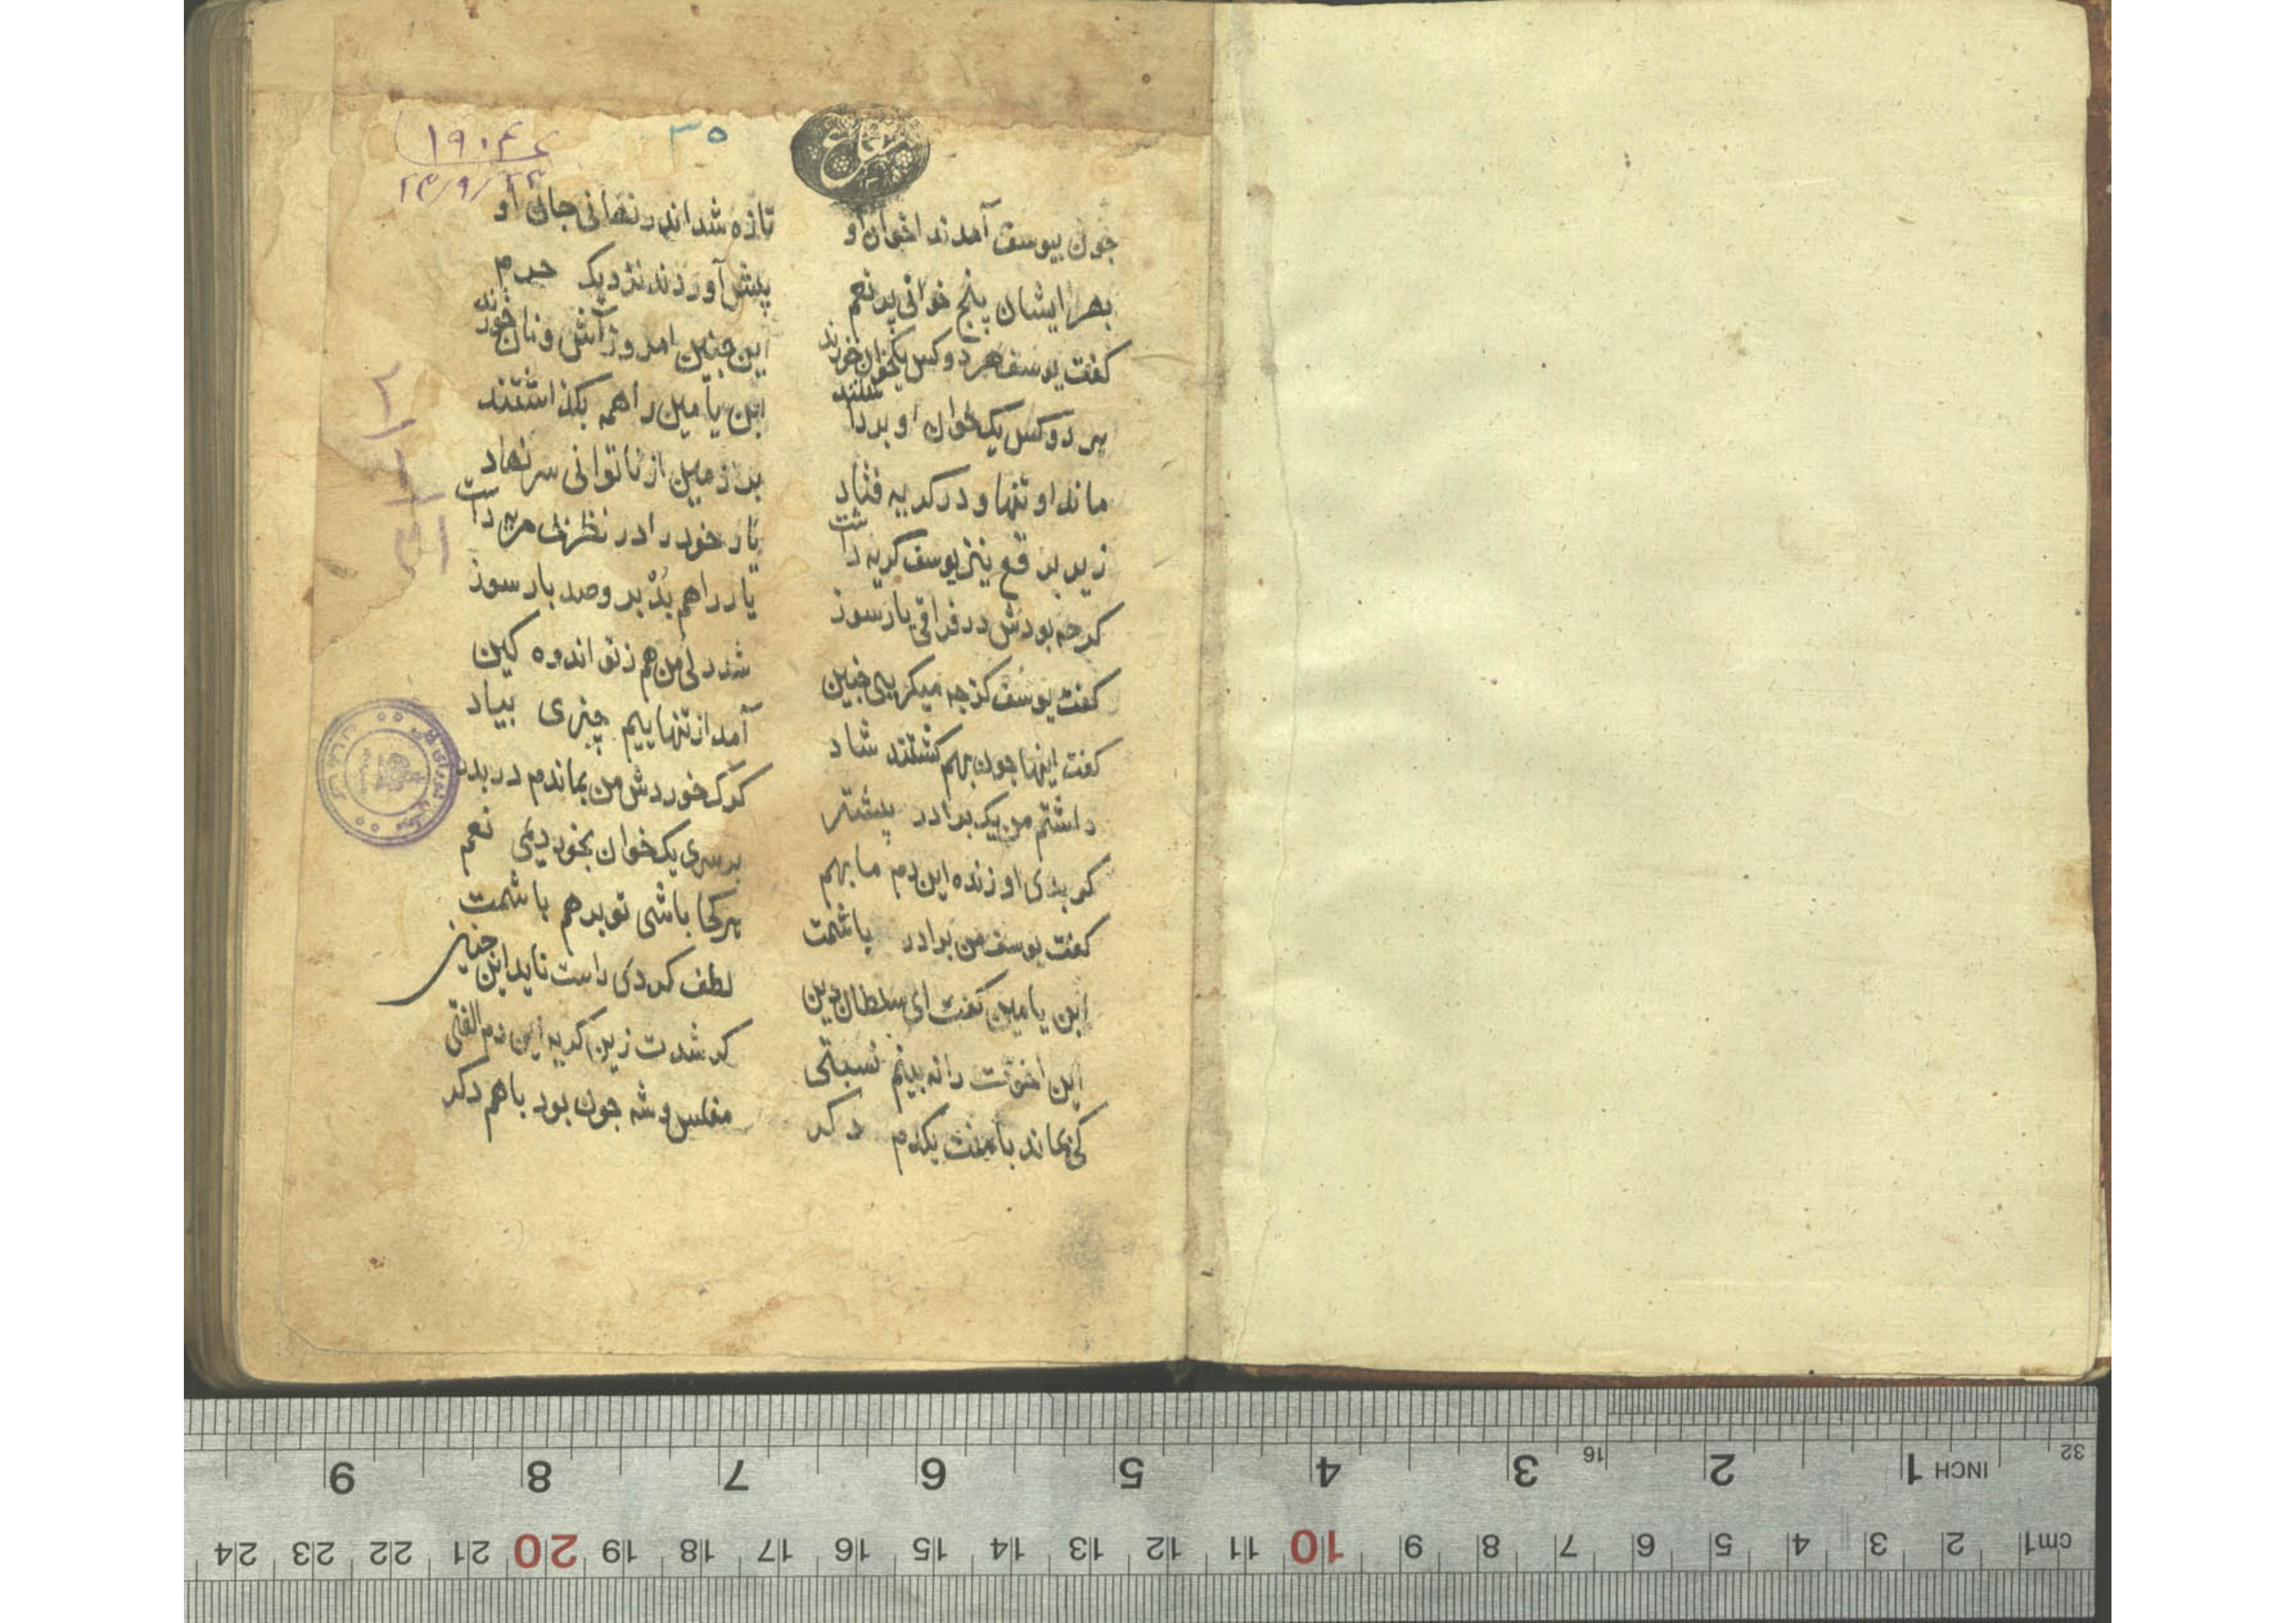 ۱۹۰۴۶
۲۳/۹/۲۴
۳۵
جون بیوسف آمدند اخوان او تازه شد اندر نهانی جان او
بهر ایشان پنج خوانی پر نعم پیش آوردند نزدیک حرم
کفت یوسف هر دو کس یکخوان خورند این جنین امروز آش و نان خورند
هر دو کس یک خوان او برداشتند ابن یامین را همه بکذاشتند
ماند او تنها و در کریه فتاد بر زمین از ناتوانی سر نهاد
زیر برقع نیز یوسف کریه داشت یار خود را در نظر
کرجه بودش در فراق یار سوز یار را هم بُدْ بر و صد بار سوز
کفت یوسف کزجه میکریی جنین شد دل من هم ز تو اندوه کین
کفت اینها جون بهم کشتند شاد آمد از تنهاییم چیزی بیاد
داشتم من یک برادر پیشتر کرک خوردش من بماندم در بدر
کر بدی او زنده این دم ما بهم بر سری یک خوان بخوردیمی نعم
کفت یوسف من برادر باشمت هر کجا باشی تو بر هم باشمت
ابن یامین کفت ای سلطان دین لطف کردی راست ناید این جنین
این اخوّت را نه بینم نسبتی کر شدت زین کریه این دم الفتی
کی بماند با منت یکدم دکر مفلس و شه جون بود با هم دکر